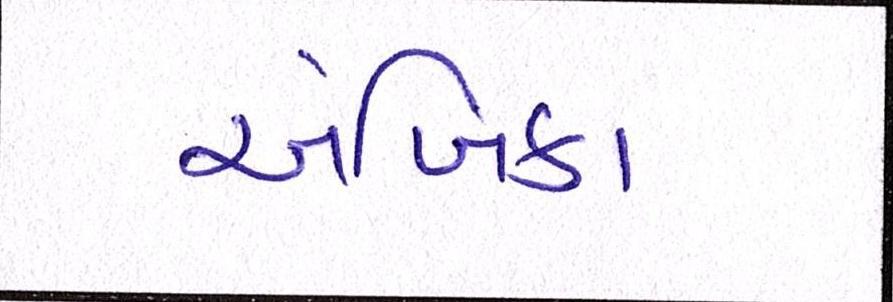 અંબિકા